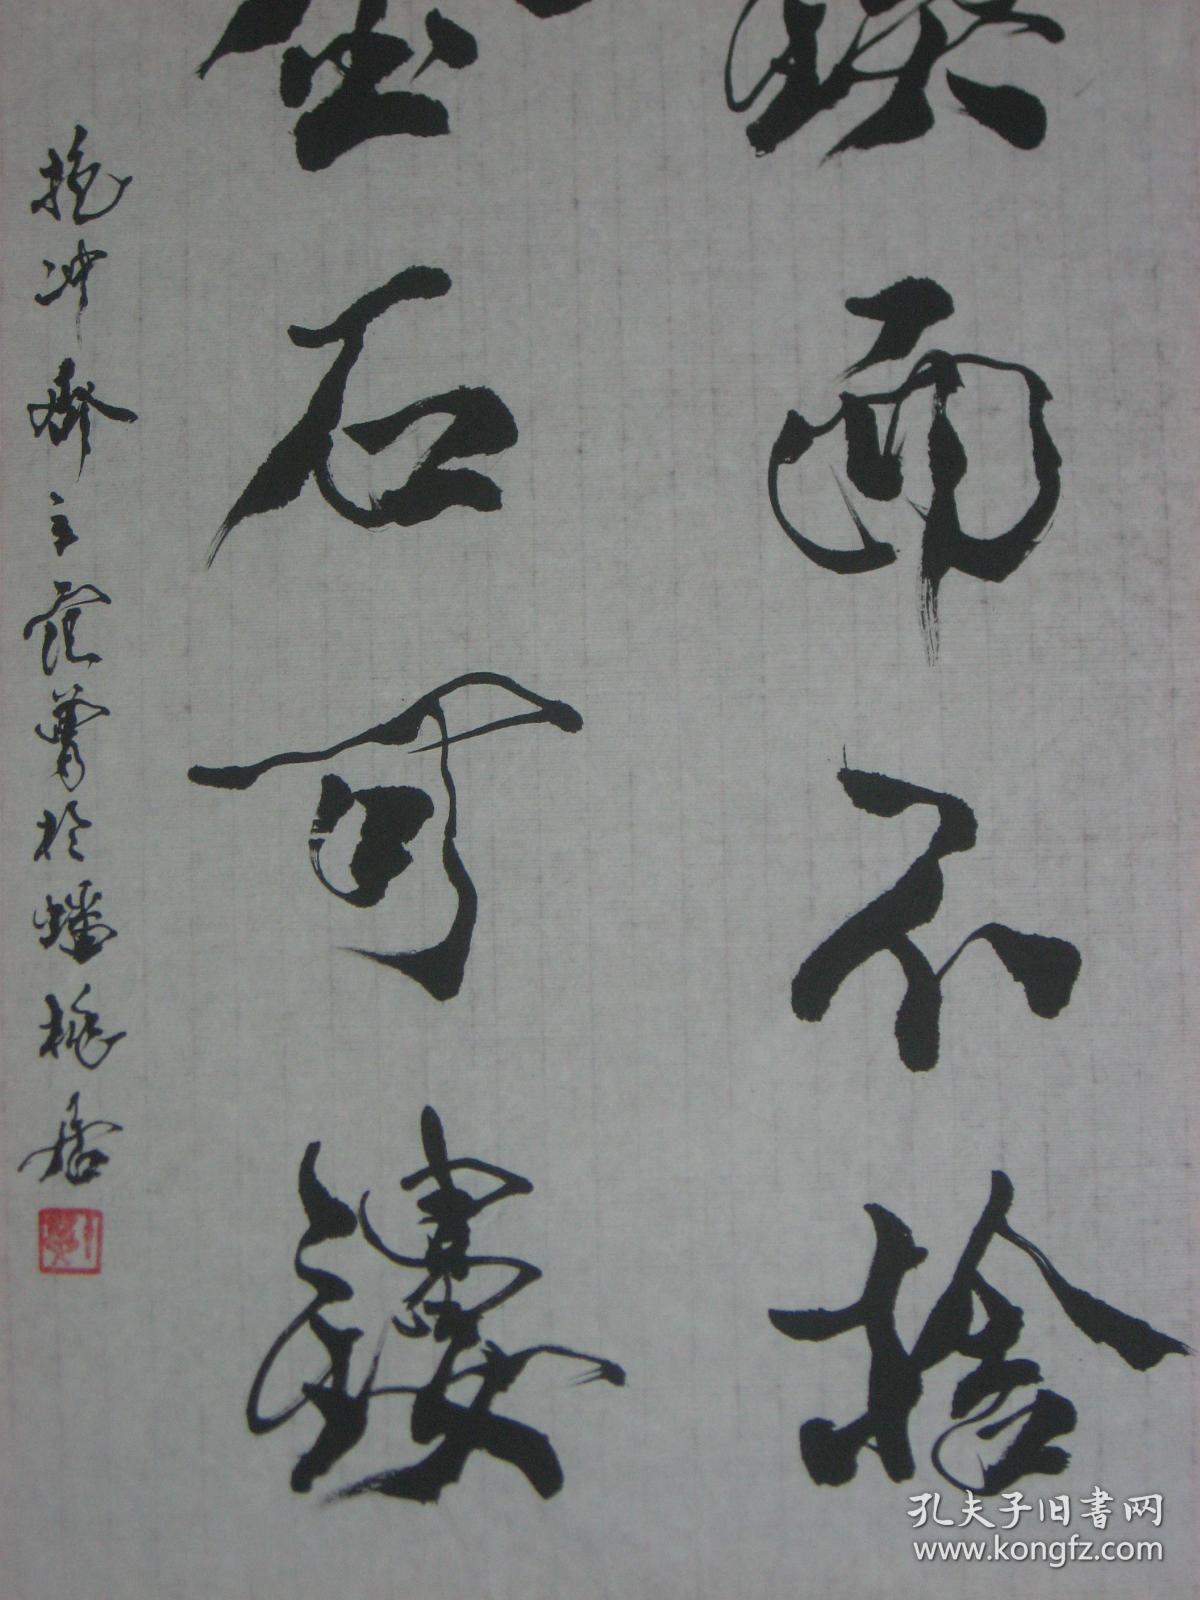 锲而不捨
金石可鏤
抱冲斋主范曾於蟠桃居
孔夫子旧书网
www.kongfz.com